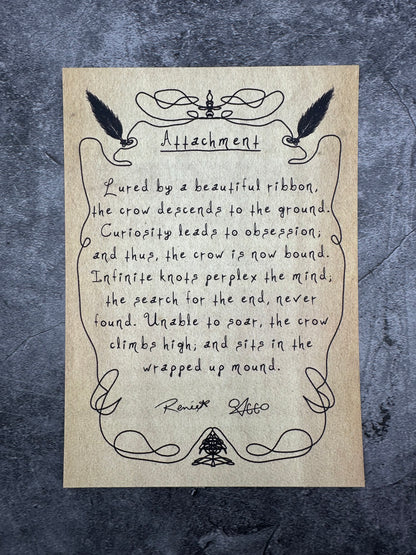 Attachment
Lured by a beautiful ribbon,
the crow descends to the ground.
Curiosity leads to obsession;
and thus, the crow is now bound.
Infinite knots perplex the mind;
the search for the end, never
found. Unable to soar, the crow
climbs high; and sits in the
wrapped up mound.
Renée